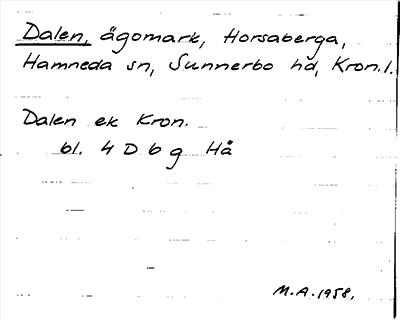 Dalen, ägomark, Horsaberga,
Hamneda sn, Sunnerbo hd, Kron. l.
Dalen ek Kron.
bl. 4 D 6 g Hå
M.A. 1958.